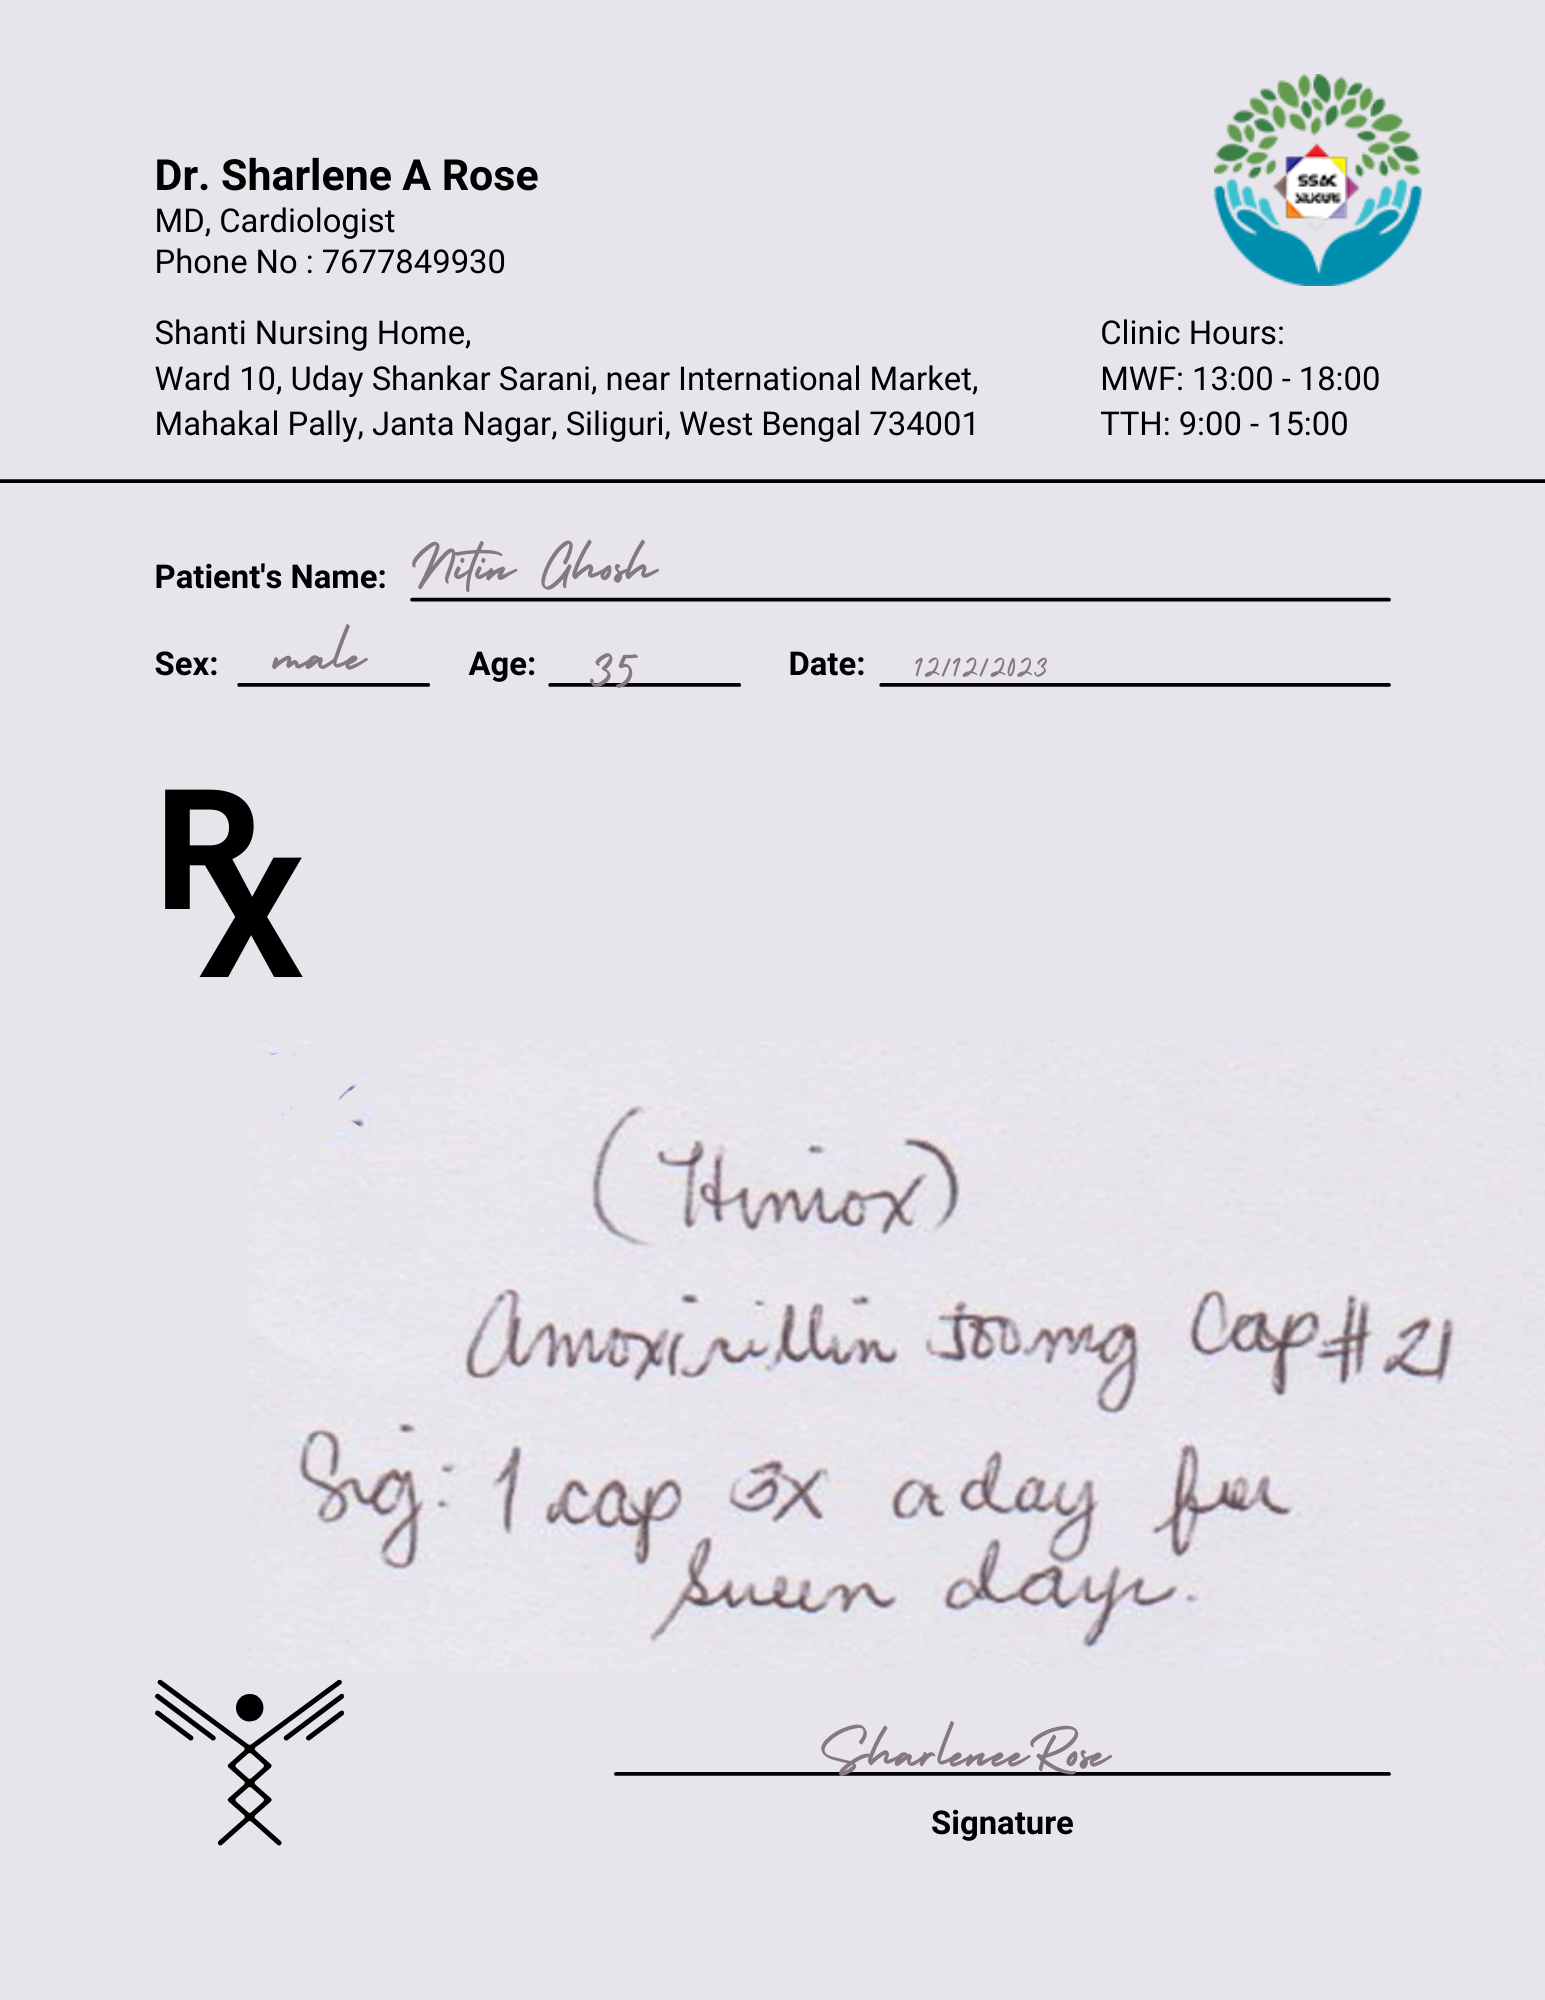 Dr. Sharlene A Rose
MD, Cardiologist
Phone No : 7677849930
SS&C
SILIGURI
Shanti Nursing Home,
Ward 10, Uday Shankar Sarani, near International Market,
Mahakal Pally, Janta Nagar, Siliguri, West Bengal 734001
Clinic Hours:
MWF: 13:00 - 18:00
TTH: 9:00 - 15:00
Patient's Name: Nitin Ghosh
Sex: male Age: 35 Date: 12/12/2023
Rx
(Himox)
Amoxicillin 500mg Cap # 21
Sig: 1 cap 3x a day for
seven days.
Sharlenee Rose
Signature